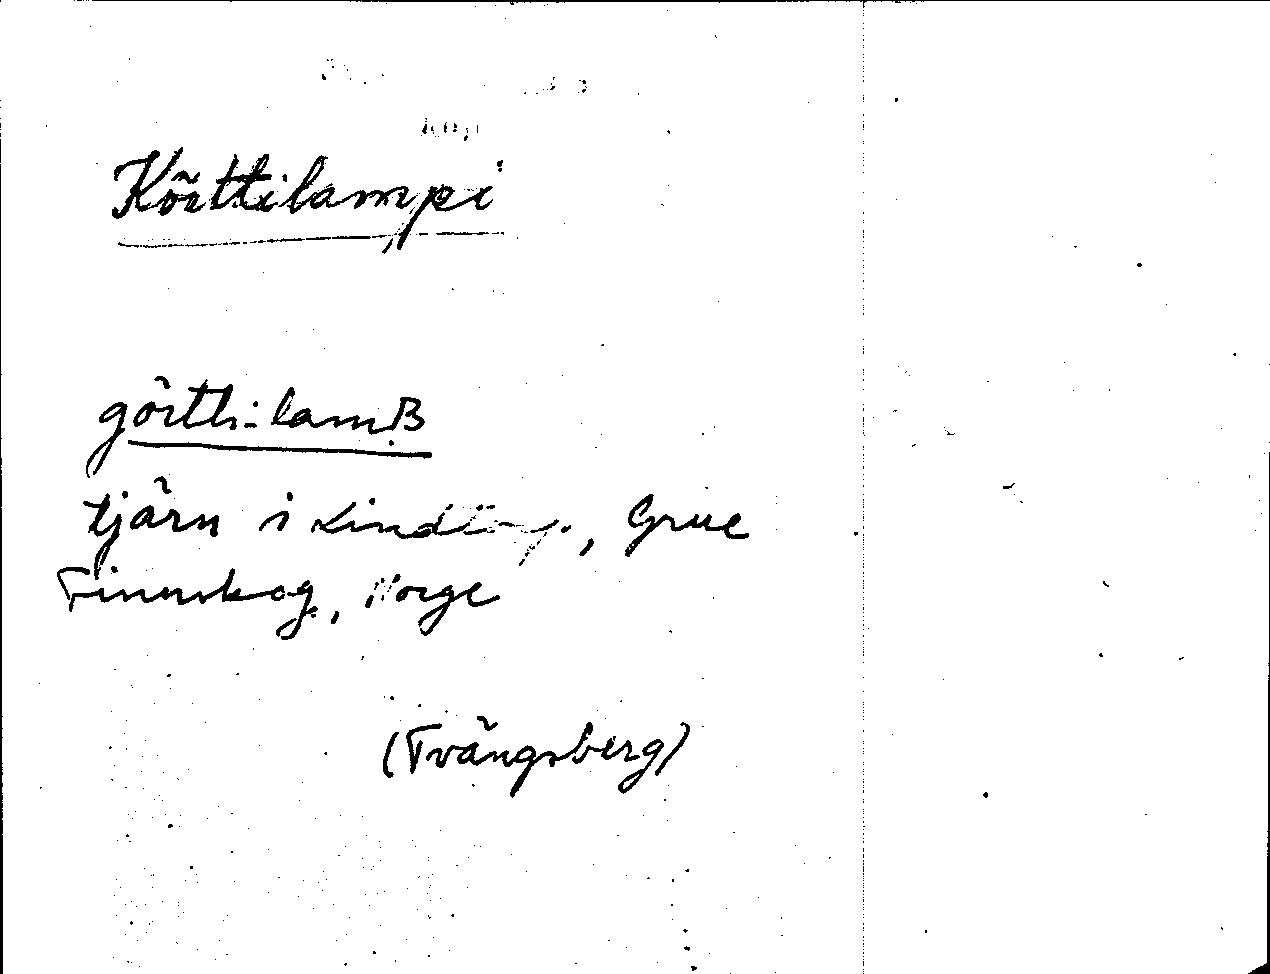 Körttilampi
görtti-lamB
tjärn i Grue
Finnskog, Norge
(Tvängsberg)